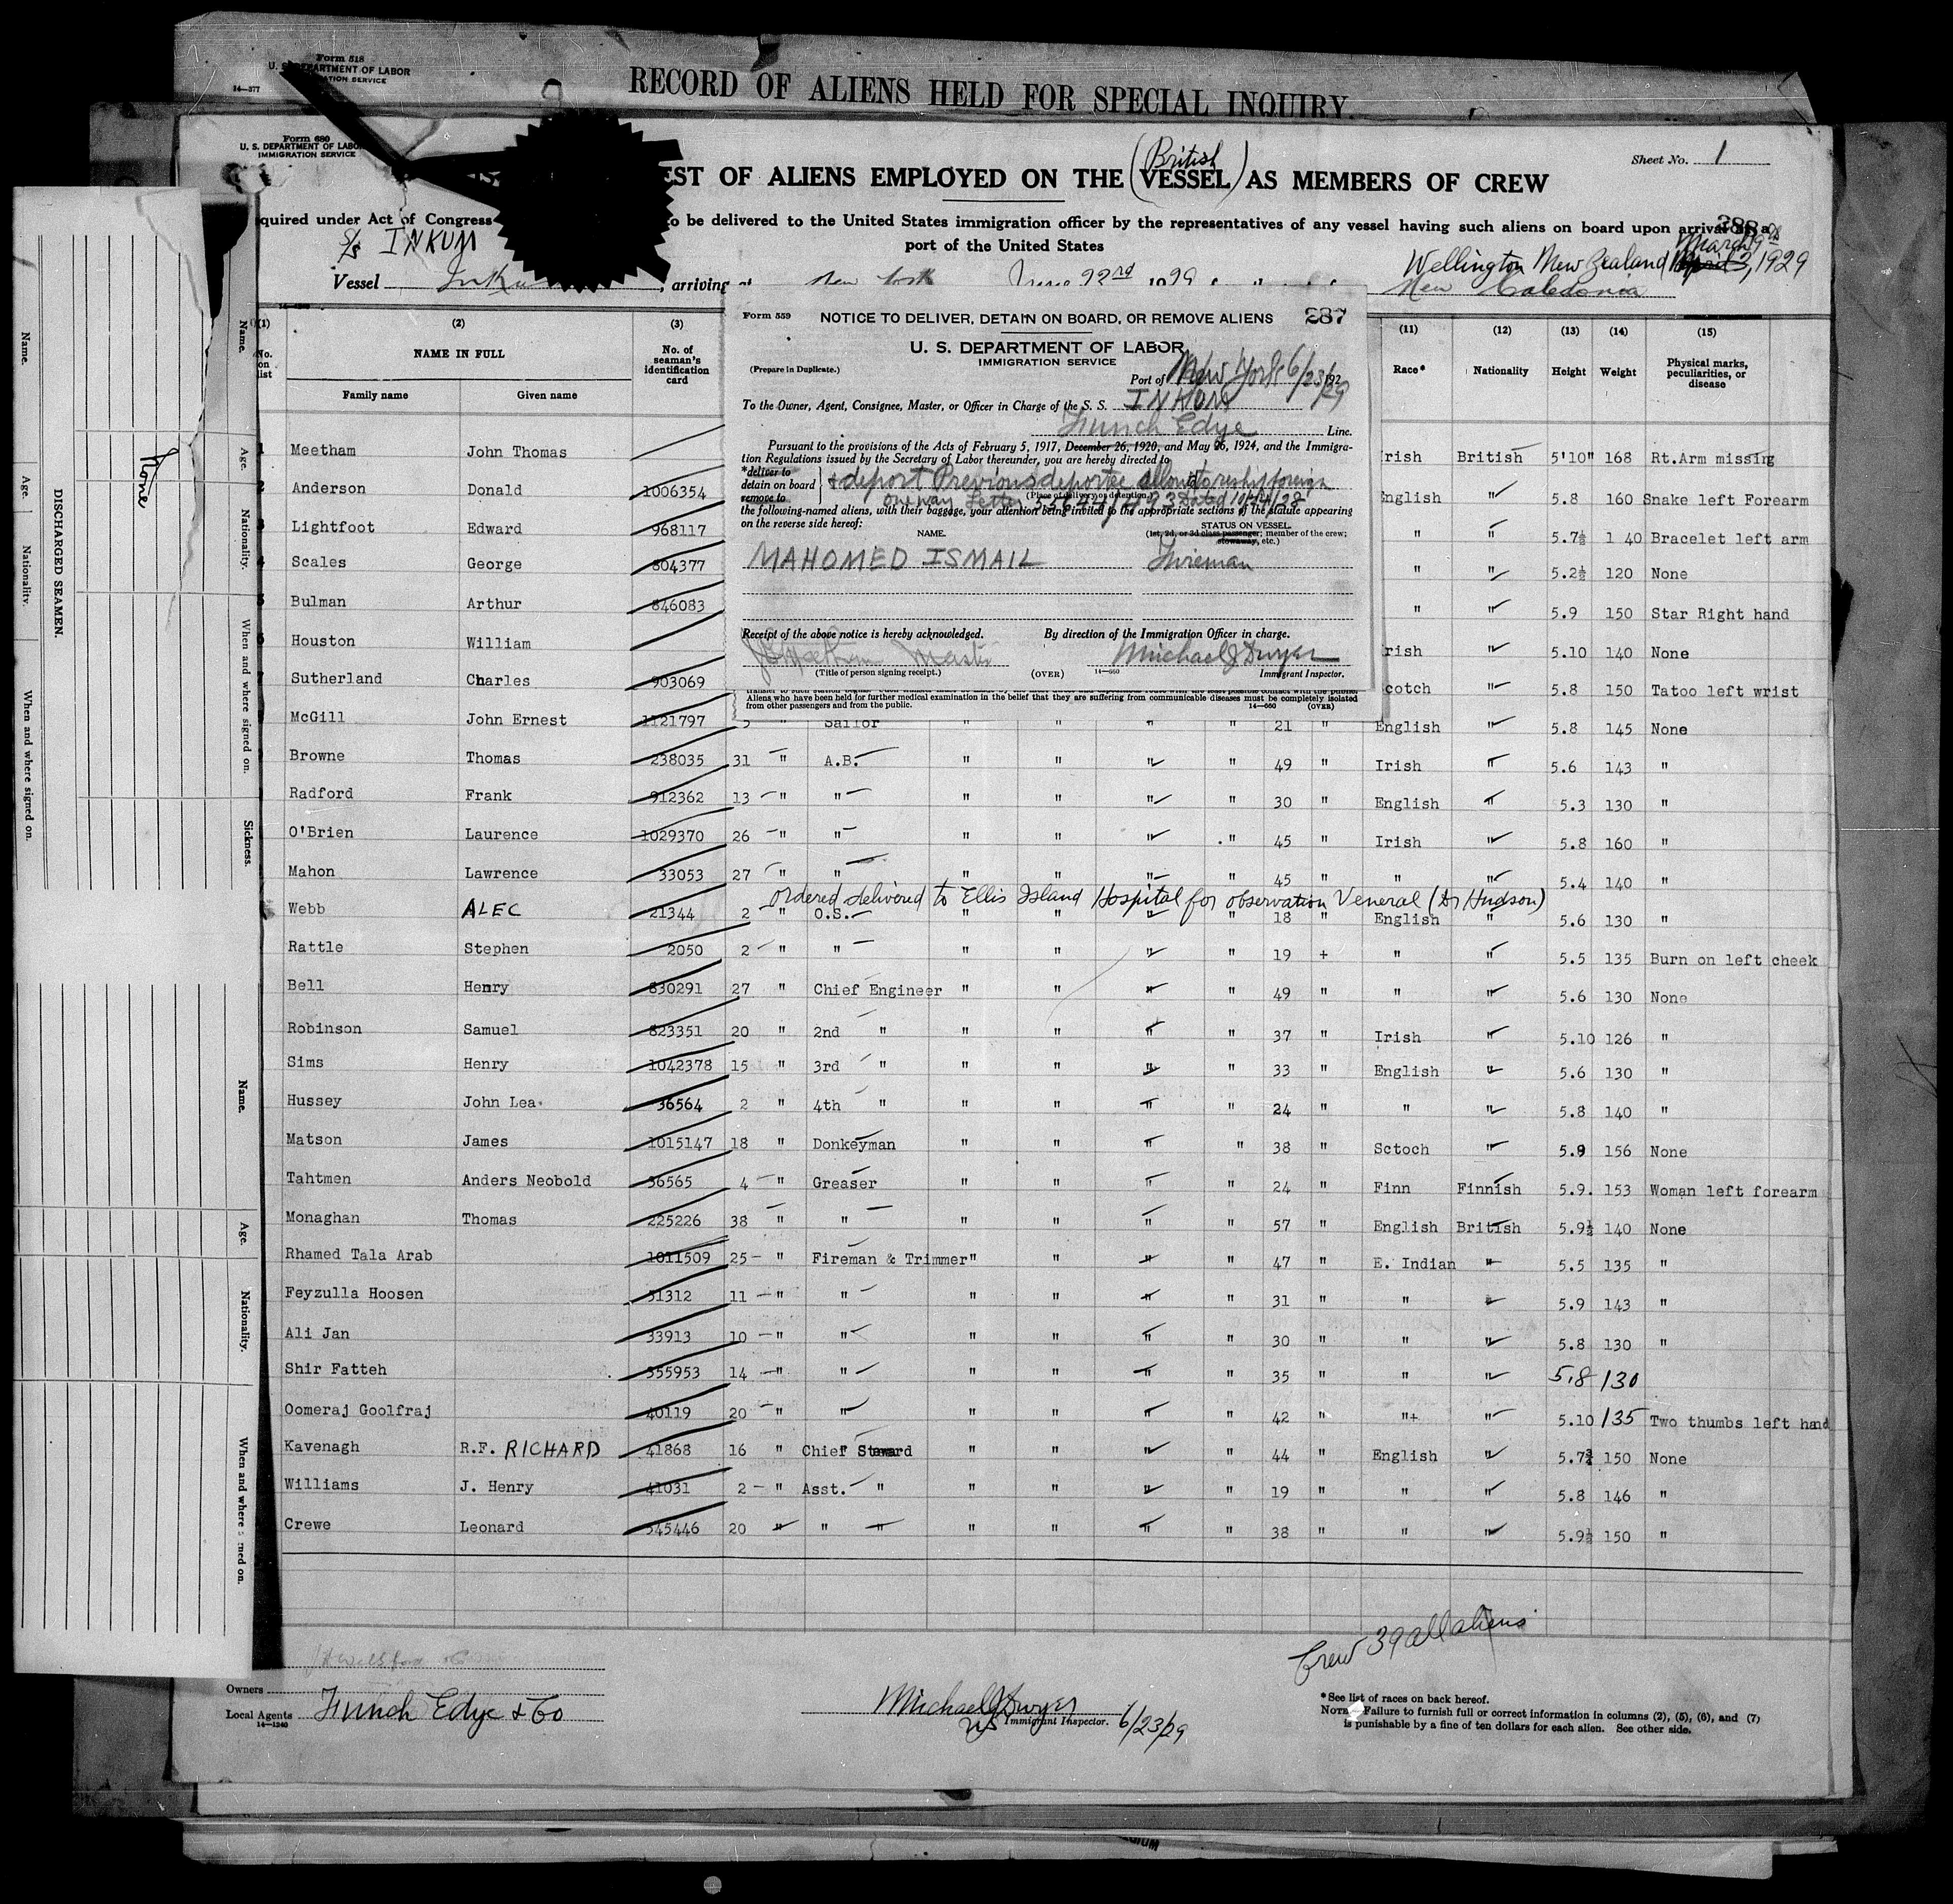 Form 518
U. S. DEPARTMENT OF LABOR
IMMIGRATION SERVICE
14—377
RECORD OF ALIENS HELD FOR SPECIAL INQUIRY.
Form 680
U. S. DEPARTMENT OF LABOR
IMMIGRATION SERVICE
Sheet No. 1
EST OF ALIENS EMPLOYED ON THE (British VESSEL) AS MEMBERS OF CREW
quired under Act of Congress to be delivered to the United States immigration officer by the representatives of any vessel having such aliens on board upon arrival at a
port of the United States
S/S INKUM
Wellington New Zealand March 9, 1929
Vessel Inkum, arriving at New York June 22nd 1929 New Caledonia
(1) (2) (3) (11) (12) (13) (14) (15)
No. on list NAME IN FULL No. of seaman's identification card Race* Nationality Height Weight Physical marks, peculiarities, or disease
Family name Given name
Form 559 NOTICE TO DELIVER, DETAIN ON BOARD, OR REMOVE ALIENS 287
U. S. DEPARTMENT OF LABOR
IMMIGRATION SERVICE
(Prepare in Duplicate.)
Port of New York 6/23/29 192
To the Owner, Agent, Consignee, Master, or Officer in Charge of the S. S. INKUM
Funch Edye Line.
Pursuant to the provisions of the Acts of February 5, 1917, December 26, 1920, and May 26, 1924, and the Immigra-
tion Regulations issued by the Secretary of Labor thereunder, you are hereby directed to
*deliver to
detain on board + deport Previous deportee allowed to reship foreign
remove to one way Letter Dated 10/24/28
(Place of delivery or detention.)
the following-named aliens, with their baggage, your attention being invited to the appropriate sections of the statute appearing
on the reverse side hereof:
NAME. STATUS ON VESSEL.
(1st, 2d, or 3d class passenger; member of the crew; stowaway, etc.)
MAHOMED ISMAIL Fireman
Receipt of the above notice is hereby acknowledged. By direction of the Immigration Officer in charge.
Master Michael J Dwyer
(Title of person signing receipt.) (OVER) 14—660 Immigrant Inspector.
Aliens who have been held for further medical examination in the belief that they are suffering from communicable diseases must be completely isolated
from other passengers and from the public. 14—660 (OVER)
1 Meetham John Thomas rish British 5'10" 168 Rt.Arm missing
2 Anderson Donald 1006354 English " 5.8 160 Snake left Forearm
3 Lightfoot Edward 968117 " " 5.7½ 1 40 Bracelet left arm
4 Scales George 804377 " " 5.2½ 120 None
5 Bulman Arthur 846083 " " 5.9 150 Star Right hand
6 Houston William rish " 5.10 140 None
7 Sutherland Charles 903069 cotch " 5.8 150 Tatoo left wrist
McGill John Ernest 1121797 5 " Sailor " " " " 21 " English " 5.8 145 None
Browne Thomas 238035 31 " A.B. " " " " 49 " Irish " 5.6 143 "
Radford Frank 912362 13 " " " " " " 30 " English " 5.3 130 "
O'Brien Laurence 1029370 26 " " " " " " 45 " Irish " 5.8 160 "
Mahon Lawrence 33053 27 " " " " " " 45 " " " 5.4 140 "
ordered delivered to Ellis Island Hospital for observation Veneral (Dr Hudson)
Webb ALEC 21344 2 " O.S. " " " " 18 " English " 5.6 130 "
Rattle Stephen 2050 2 " " " " " " 19 + " " 5.5 135 Burn on left cheek
Bell Henry 830291 27 " Chief Engineer " " " " 49 " " " 5.6 130 None
Robinson Samuel 823351 20 " 2nd " " " " " 37 " Irish " 5.10 126 "
Sims Henry 1042378 15 " 3rd " " " " " 33 " English " 5.6 130 "
Hussey John Lea 36564 2 " 4th " " " " " 24 " " " 5.8 140 "
Matson James 1015147 18 " Donkeyman " " " " 38 " Sctoch " 5.9 156 None
Tahtmen Anders Neobold 36565 4 " Greaser " " " " 24 " Finn Finnish 5.9. 153 Woman left forearm
Monaghan Thomas 225226 38 " " " " " " 57 " English British 5.9½ 140 None
Rhamed Tala Arab 1011509 25 " Fireman & Trimmer " " " " 47 " E. Indian " 5.5 135 "
Feyzulla Hoosen 31312 11 " " " " " " 31 " " " 5.9 143 "
Ali Jan 33913 10 " " " " " " 30 " " " 5.8 130 "
Shir Fatteh 355953 14 " " " " " " 35 " " " 5.8 130
Oomeraj Goolfraj 40119 20 " " " " " " 42 " "+ " 5.10 135 Two thumbs left hand
Kavenagh R.F. RICHARD 41868 16 " Chief Steward " " " " 44 " English " 5.7¾ 150 None
Williams J. Henry 41031 2 " Asst. " " " " " 19 " " " 5.8 146 "
Crewe Leonard 545446 20 " " " " " " " 38 " " " 5.9½ 150 "
Crew 39 all aliens
Owners
Local Agents Funch Edye & Co
14—1240
Michael J Dwyer
US Immigrant Inspector. 6/23/29
*See list of races on back hereof.
NOTE Failure to furnish full or correct information in columns (2), (5), (6), and (7)
is punishable by a fine of ten dollars for each alien. See other side.
DISCHARGED SEAMEN.
Name. Age. Nationality. When and where signed on.
None
Name. Age. Nationality. When and where signed on. Sickness.
Name. Age. Nationality. When and where signed on.